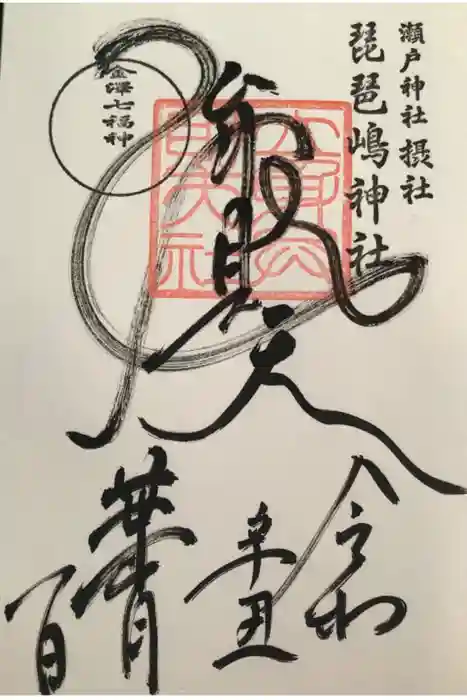 瀬戸神社摂社
琵琶嶋神社
金澤七福神
弁財天
令和
辛丑
華月
百